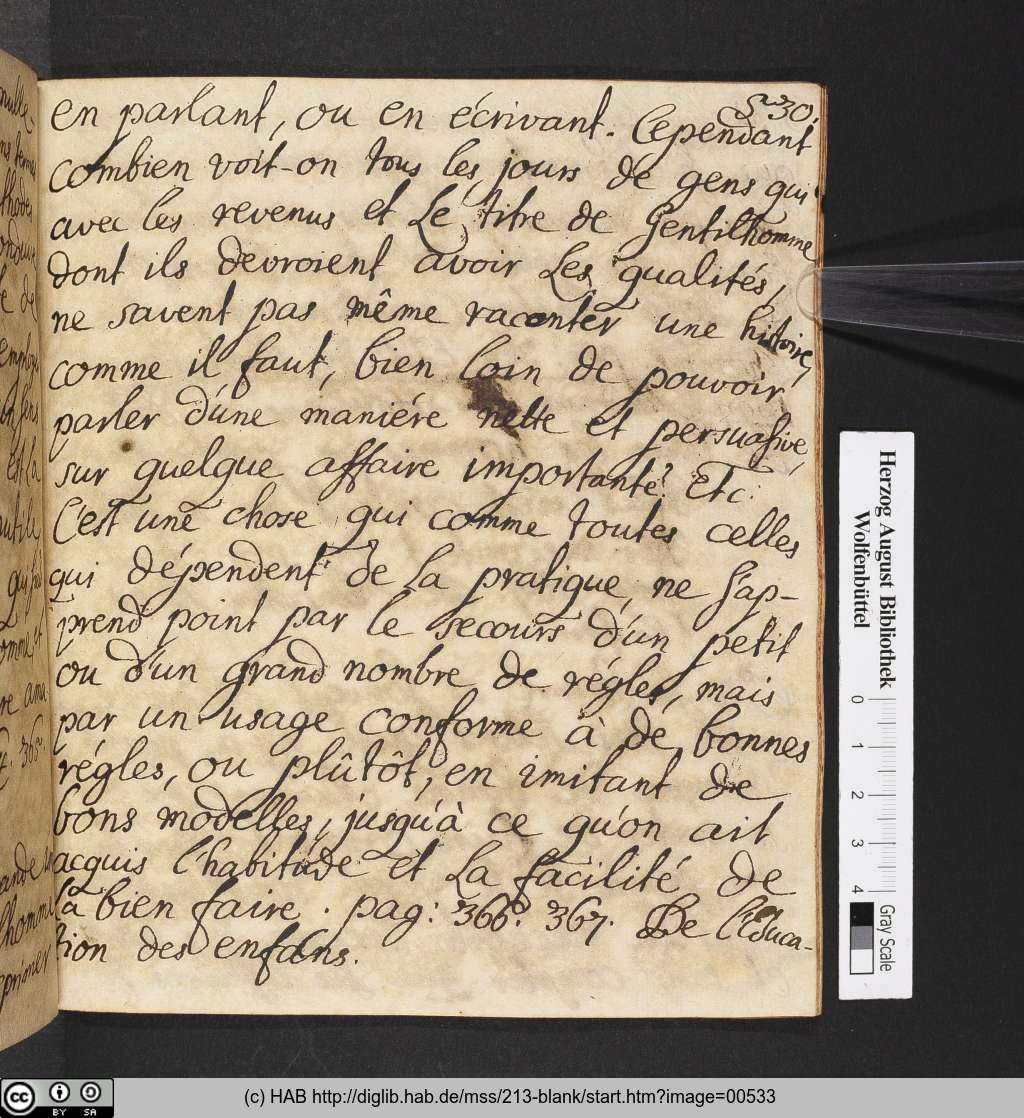 530.
en parlant, ou en écrivant. Cependant
combien voit-on tous les jours de gens qui
avec les revenus et Le titre de Gentilhomme
dont ils devroient avoir Les qualités,
ne savent pas même raconter une histoire,
comme il faut, bien loin de pouvoir
parler d'une maniére nette et persuasive,
sur quelque affaire importante? Etc:
C'est une chose qui comme toutes celles
qui dépendent de La pratique, ne s'ap-
prend point par le secours d'un petit
ou d'un grand nombre de régles, mais
par un usage conforme à de bonnes
régles, ou plûtôt, en imitant de
bons modelles, jusqu'à ce qu'on ait
acquis l'habitude et La facilité de
la bien faire. pag: 366. 367. De l'Educa-
tion des enfans.
Herzog August Bibliothek
Wolfenbüttel
0 1 2 3 4
Gray Scale
cc BY SA
(c) HAB http://diglib.hab.de/mss/213-blank/start.htm?image=00533